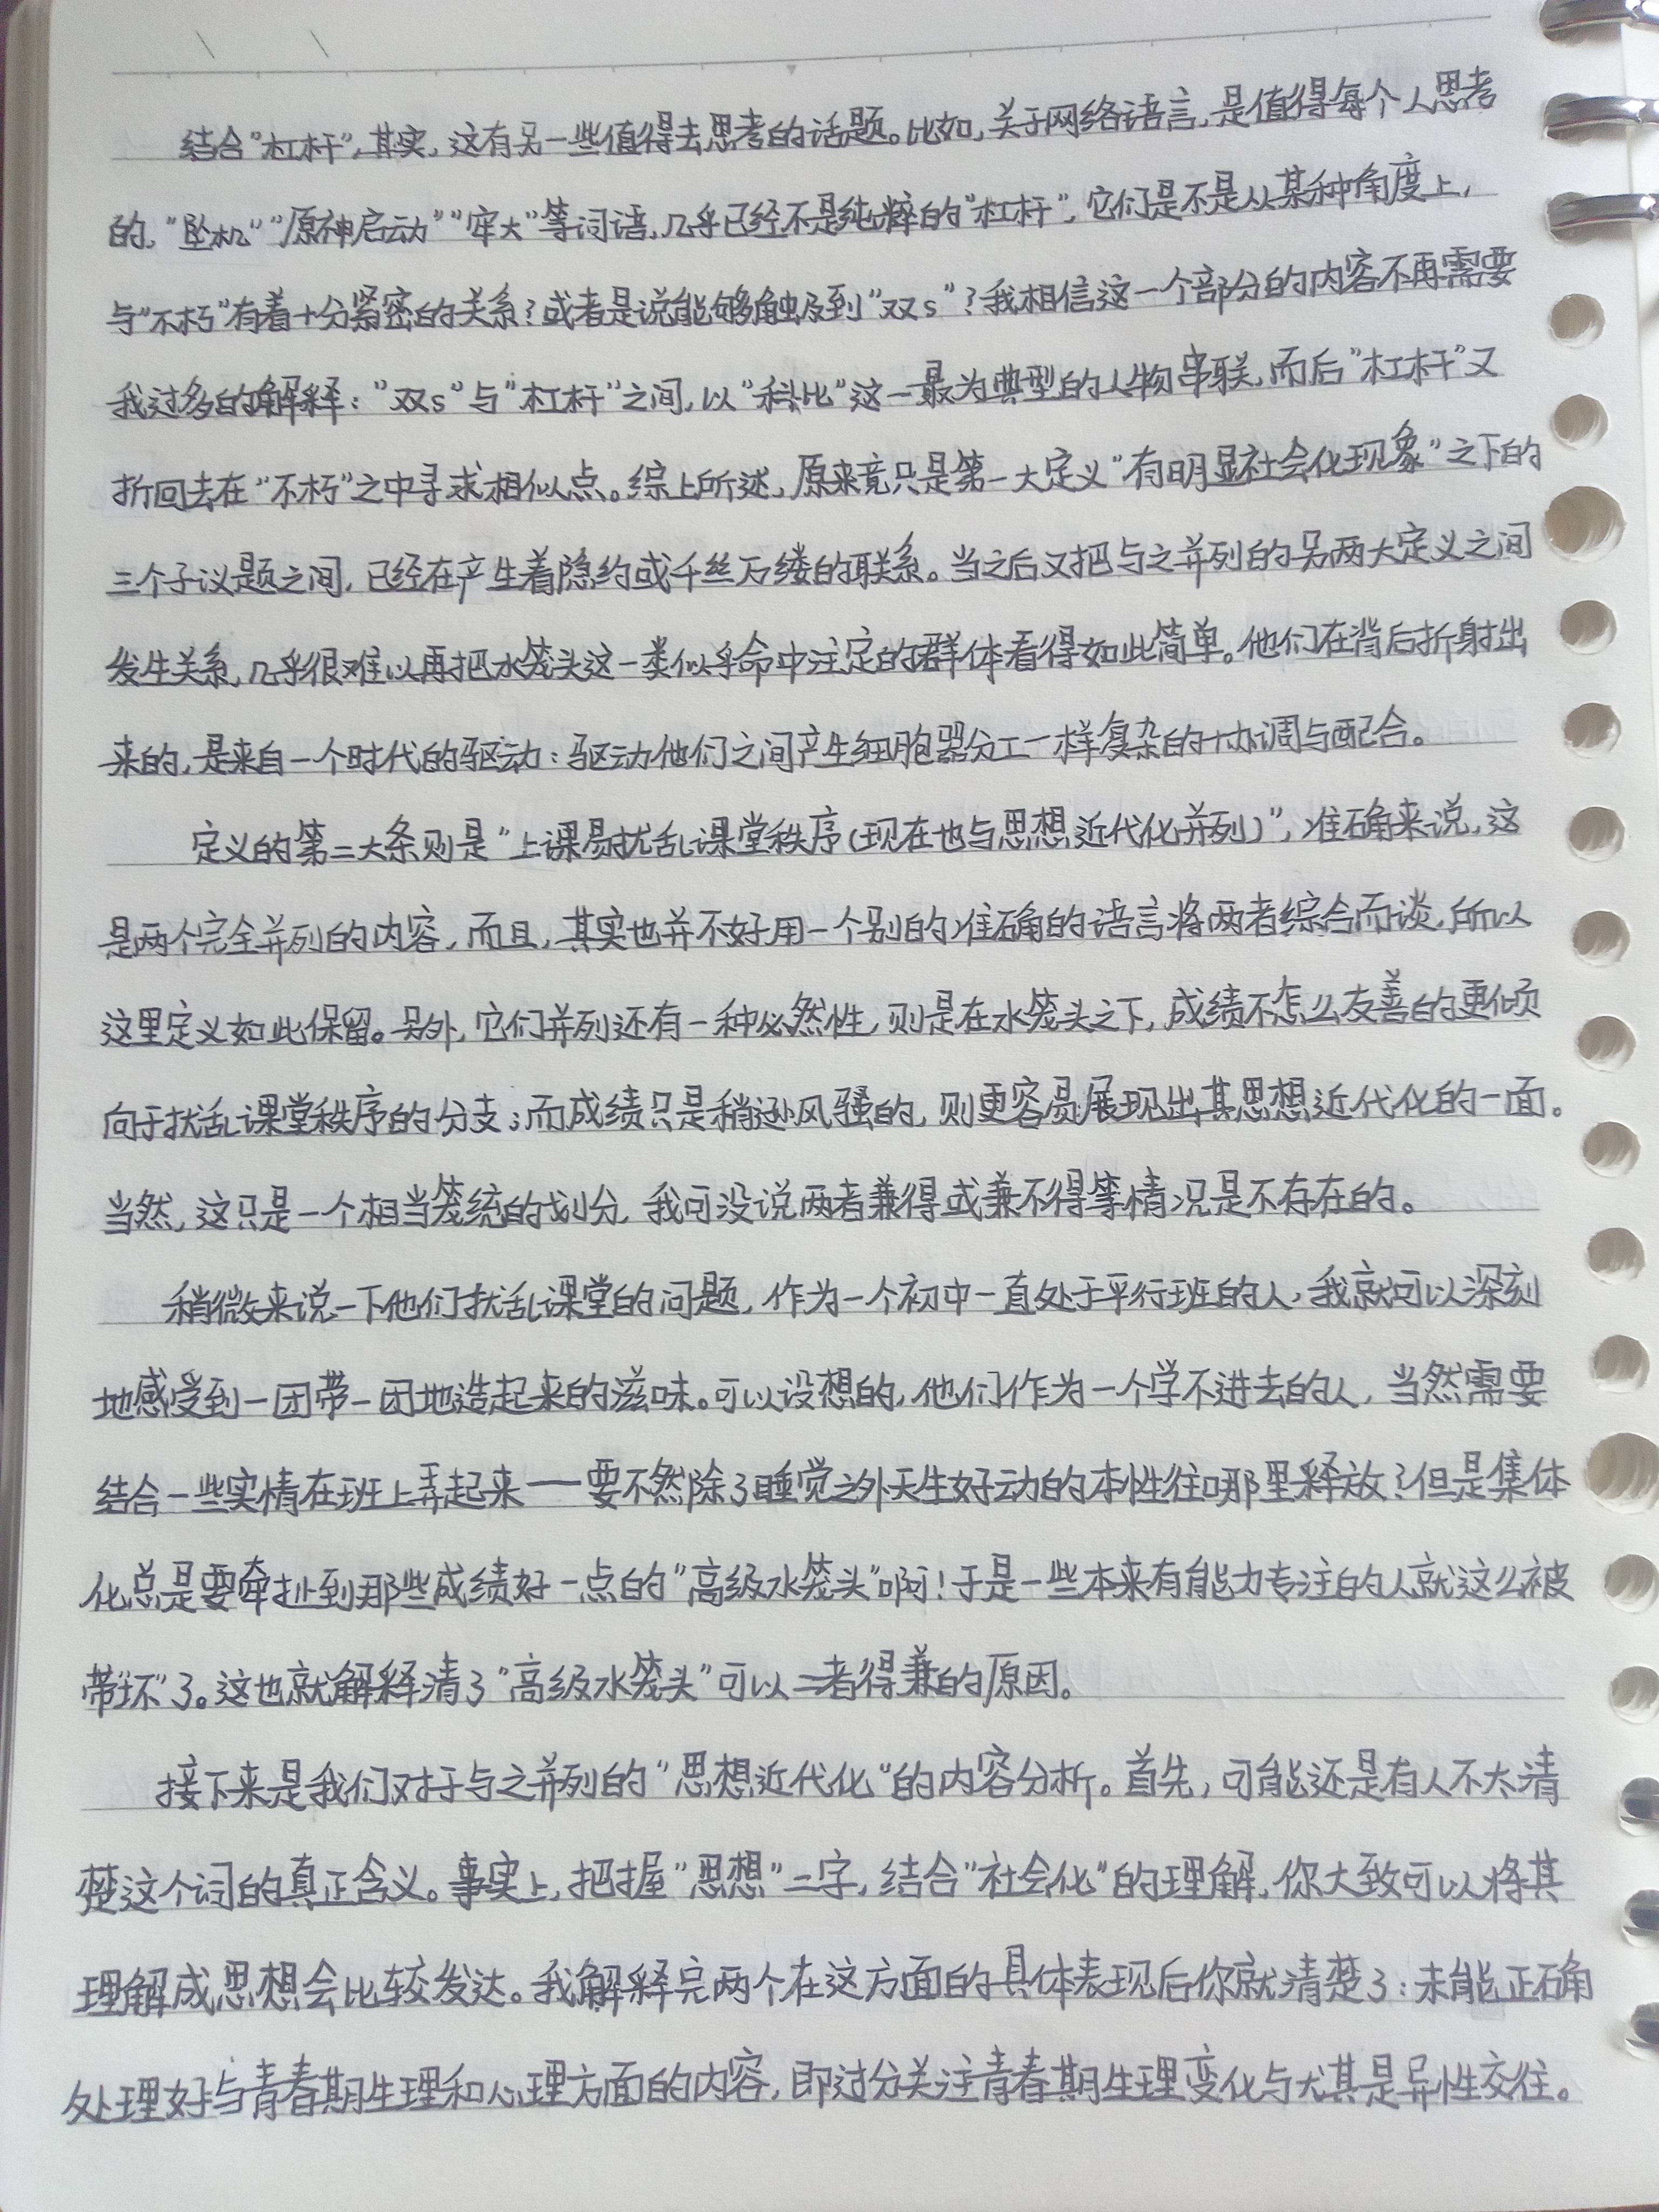 结合“杠杆”，其实，这有另一些值得去思考的话题。比如，关于网络语言，是值得每个人思考
的，“坠机”“原神启动”“牢大”等词语，几乎已经不是纯粹的“杠杆”，它们是不是从某种角度上，
与“不朽”有着十分紧密的关系？或者是说能够触及到“双s”？我相信这一个部分的内容不再需要
我过多的解释：“双s”与“杠杆”之间，以“科比”这一最为典型的人物串联，而后“杠杆”又
折回去在“不朽”之中寻求相似点。综上所述，原来竟只是第一大定义“有明显社会化现象”之下的
三个子议题之间，已经在产生着隐约或千丝万缕的联系。当之后又把与之并列的另两大定义之间
发生关系，几乎很难以再把水笼头这一类似乎命中注定的群体看得如此简单。他们在背后折射出
来的，是来自一个时代的驱动：驱动他们之间产生细胞器分工一样复杂的协调与配合。
定义的第二大条则是“上课易扰乱课堂秩序（现在也与思想近代化并列）”，准确来说，这
是两个完全并列的内容，而且，其实也并不好用一个别的准确的语言将两者综合而谈，所以
这里定义如此保留。另外，它们并列还有一种必然性，则是在水笼头之下，成绩不怎么友善的更倾
向于扰乱课堂秩序的分支；而成绩只是稍逊风骚的，则更容易展现出其思想近代化的一面。
当然，这只是一个相当笼统的划分，我可没说两者兼得或兼不得等情况是不存在的。
稍微来说一下他们扰乱课堂的问题，作为一个初中一直处于平行班的人，我就可以深刻
地感受到一团带一团地造起来的滋味。可以设想的，他们作为一个学不进去的人，当然需要
结合一些实情在班上弄起来——要不然除了睡觉之外天生好动的本性往哪里释放？但是集体
化总是要牵扯到那些成绩好一点的“高级水笼头”啊！于是一些本来有能力专注的人就这么被
带“坏”了。这也就解释清了“高级水笼头”可以二者得兼的原因。
接下来是我们对于与之并列的“思想近代化”的内容分析。首先，可能还是有人不太清
楚这个词的真正含义。事实上，把握“思想”二字，结合“社会化”的理解，你大致可以将其
理解成思想会比较发达。我解释完两个在这方面的具体表现后你就清楚了：未能正确
处理好与青春期生理和心理方面的内容，即过分关注青春期生理变化与尤其是异性交往。